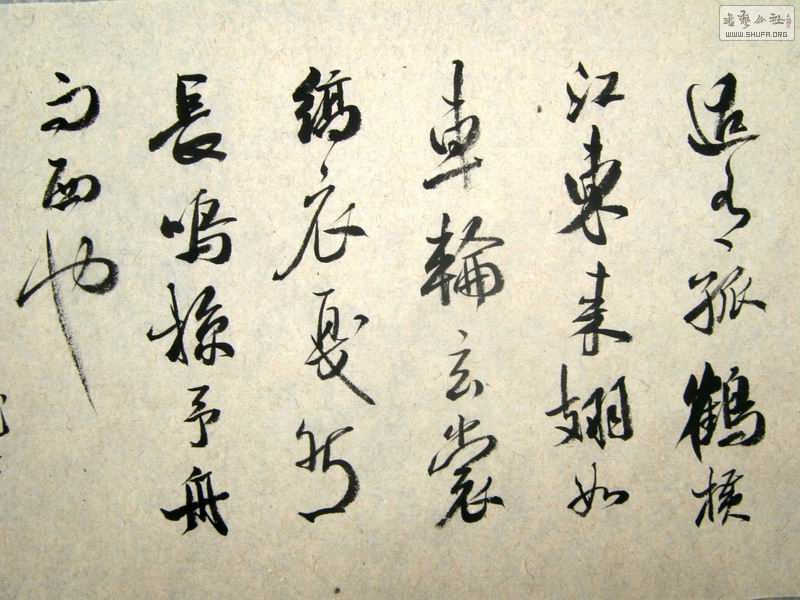 適有孤鶴橫
江東來翅如
車輪玄裳
縞衣戛然
長鳴掠予舟
而西也
书艺公社
WWW.SHUFA.ORG